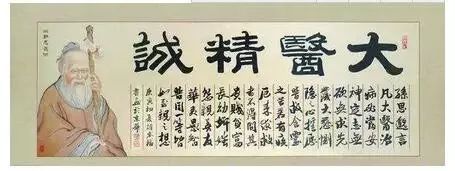 大醫精誠
孫思邈言
凡大醫治
病必當安
神定志無
欲無求先
發大慈惻
隱之心誓願
普救含靈
之苦若有疾
厄來求救
者不得問其
貴賤貧富
長幼妍蚩
怨親善友
華夷愚智
普同一等皆
如至親之想